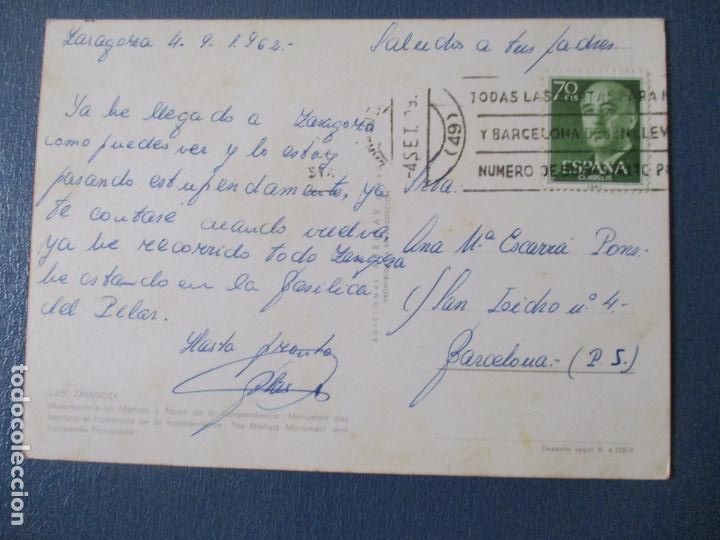 Zaragoza 4-9-1.962.-
Saludos a tus padres.
Ya he llegado a Zaragoza
como puedes ver y lo estoy
pasando estupendamente, ya
te contaré cuando vuelva,
ya he recorrido todo Zaragoza
he estando en la Basilica
del Pilar.
Hasta pronto
Srta.
Ana Mª Escarrá Pons.
C/ San Isidro nº 4.-
Barcelona.- (P. S.)
70
CTS
ESPAÑA
CORREOS
-4 SET.
(49)
TODAS LAS CARTAS PARA
Y BARCELONA DEBEN LLEV
NUMERO DE DISTRITO P
EDICIONES
PROHIBIDA REPRODUCCION
ZARAGOZA
Monumento a los Mártires y Paseo de la Independencia. Monument des
Martyrs et Promenade de la Independence. The Martyrs Monument and
Independe Promenade
Depósito Legal B. 4.128-V
todocoleccion